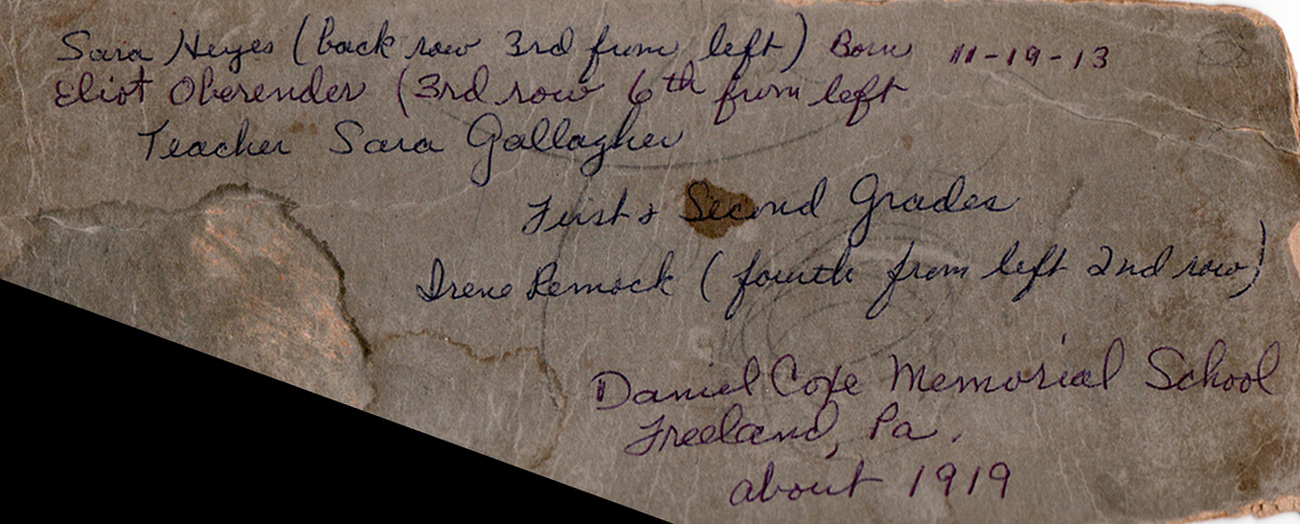 Sara Heyes (back row 3rd from left) Born 11-19-13
Eliot Oberender (3rd row 6th from left
Teacher Sara Gallagher
First & Second Grades
Irene Remock (fourth from left 2nd row)
Daniel Coxe Memorial School
Freeland, Pa.
about 1919